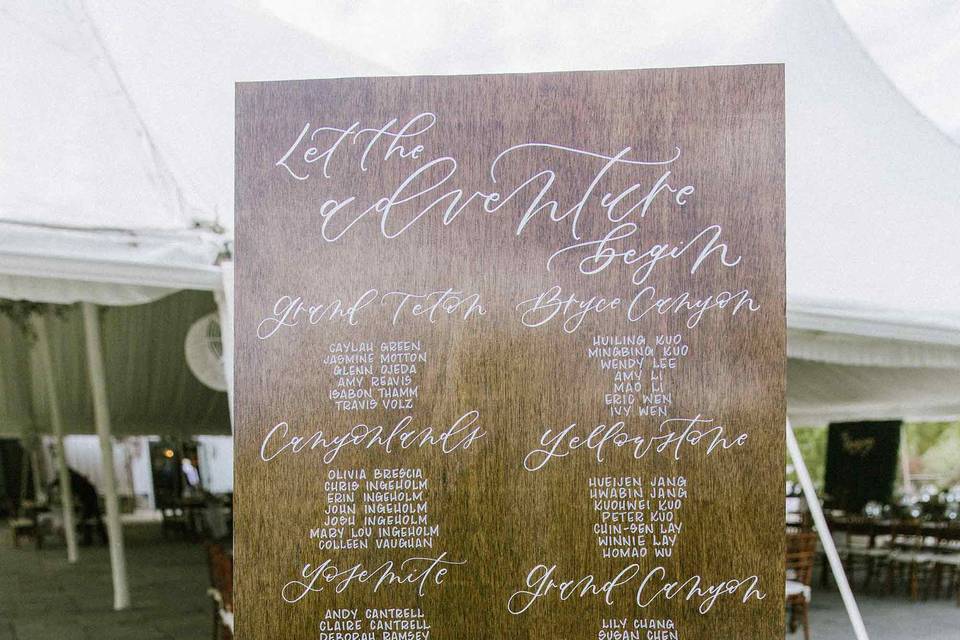 Let the
adventure
begin
Grand Teton
CAYLAH GREEN
JASMINE MOTTON
GLENN OJEDA
AMY REAVIS
ISABON THAMM
TRAVIS VOLZ
Canyonlands
OLIVIA BRESCIA
CHRIS INGEHOLM
ERIN INGEHOLM
JOHN INGEHOLM
JOSH INGEHOLM
MARY LOU INGEHOLM
COLLEEN VAUGHAN
Yosemite
ANDY CANTRELL
CLAIRE CANTRELL
DEBORAH RAMSEY
Bryce Canyon
HUILING KUO
MINGBING KUO
WENDY LEE
AMY LI
MAO LI
ERIC WEN
IVY WEN
Yellowstone
HUEIJEN JANG
HWABIN JANG
KUOHWEI KUO
PETER KUO
CHIN-SEN LAY
WINNIE LAY
HOMAO WU
Grand Canyon
LILY CHANG
SUSAN CHEN